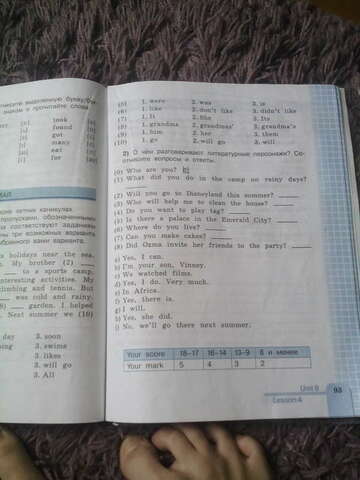 выделенную букву/бук-
знаком и прочитайте слова
look [u]
found [u]
got
many [i]
eat [e]
for [eə]
летних каникулах.
пропусками, обозначенными
соответствуют заданиям
три возможных варианта
бранного вами варианта.
s holidays near the sea.
My brother (2)
to a sports camp.
interesting activities. My
climbing and tennis. But
was cold and rainy.
garden. I helped
Next summer we (10)
day 3. soon
3. swims
3. likes
3. will go
3. All
(5) 1. were 2. was 3. is
(6) 1. like 2. don't like 3. didn't like
(7) 1. It 2. She 3. Its
(8) 1. grandma 2. grandmas' 3. grandma's
(9) 1. him 2. her 3. them
(10) 1. go 2. will go 3. will
2) О чём разговаривают литературные персонажи? Со-
отнесите вопросы и ответы.
(0) Who are you? b)
(1) What did you do in the camp on rainy days?
(2) Will you go to Disneyland this summer?
(3) Who will help me to clean the house?
(4) Do you want to play tag?
(5) Is there a palace in the Emerald City?
(6) Where do you live?
(7) Can you make cakes?
(8) Did Ozma invite her friends to the party?
a) Yes, I can.
b) I'm your son, Vinney.
c) We watched films.
d) Yes, I do. Very much.
e) In Africa.
f) Yes, there is.
g) I will.
h) Yes, she did.
i) No, we'll go there next summer.
Your score 18–17 16–14 13–9 8 и менее
Your mark 5 4 3 2
Unit 8
Lesson 4
93